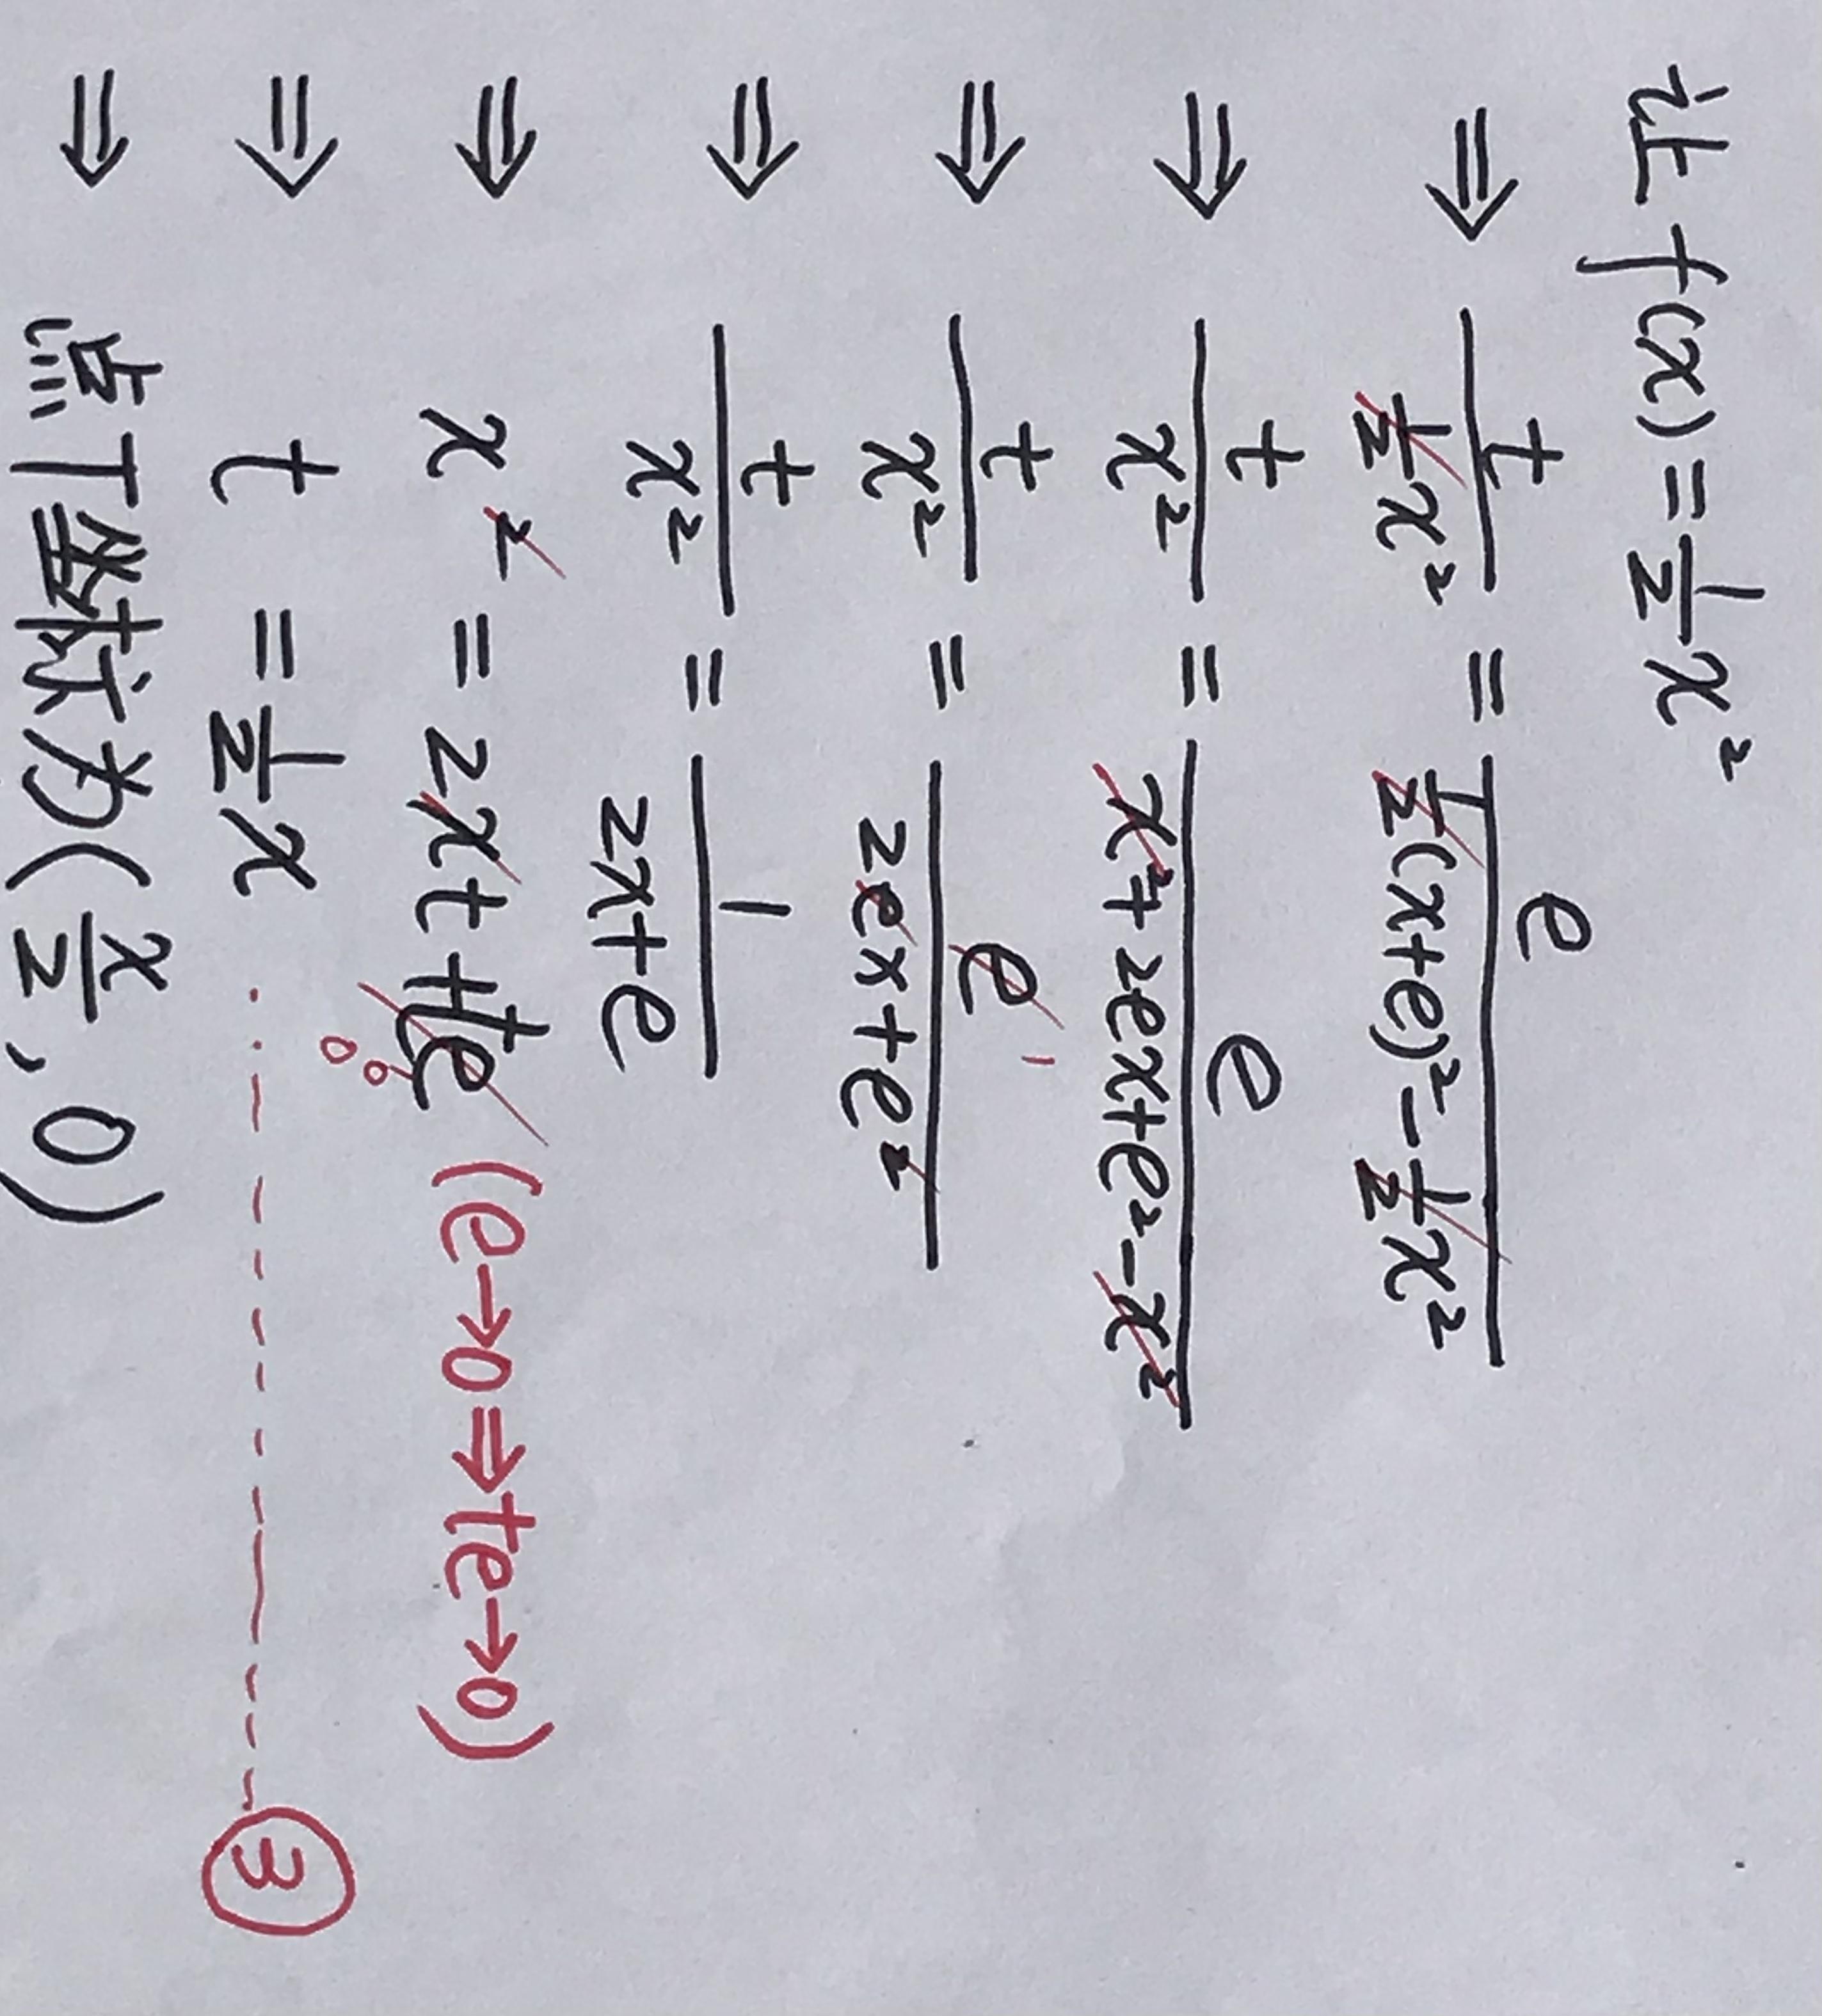 让 f(x)=1/2 x²
⇒ t/(1/2 x²) = e/(1/2(x+e)²-1/2 x²)
⇒ t/x² = e/(x²+2ex+e²-x²)
⇒ t/x² = e 1/(2ex+e²)
⇒ t/x² = 1/(2x+e)
⇒ x² = 2xt+te (e→0⇒te→0)
0 0
⇒ t =1/2 x ③
⇒ 点T坐标为(x/2, 0)